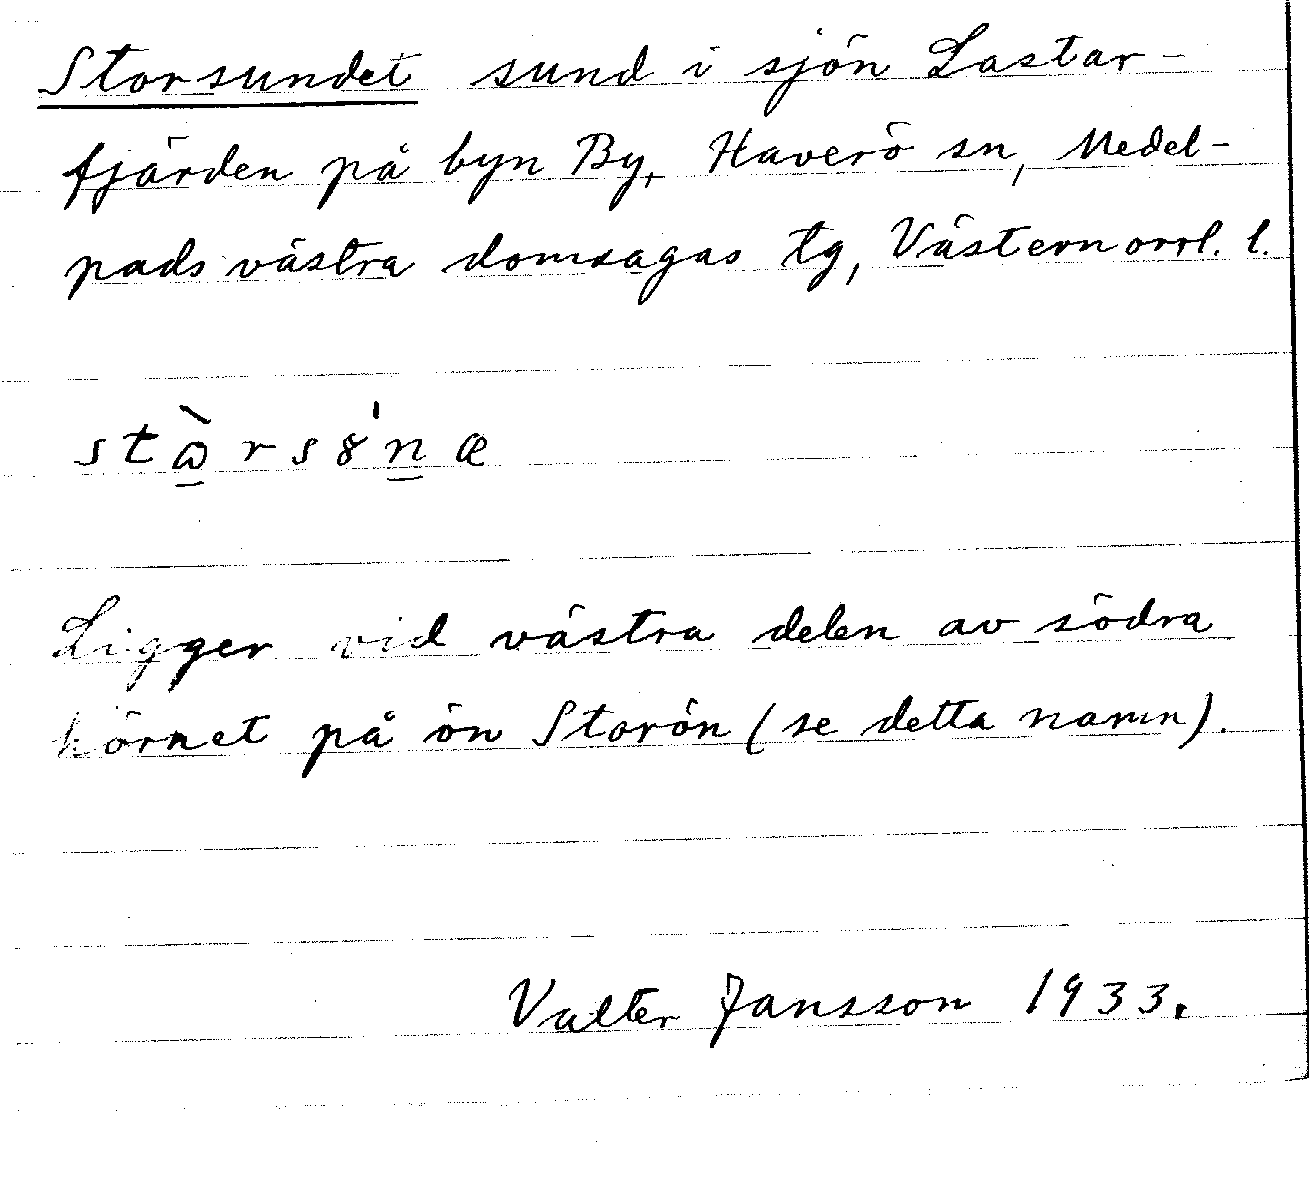 Storsundet sund i sjön Lastar-
fjärden på byn By, Haverö sn, Medel-
pads västra domsagas tg, Västernorrl. l.
stɷ̠̀rsȣ́n̠æ
Ligger vid västra delen av södra
hörnet på ön Storön (se detta namn).
Valter Jansson 1933.